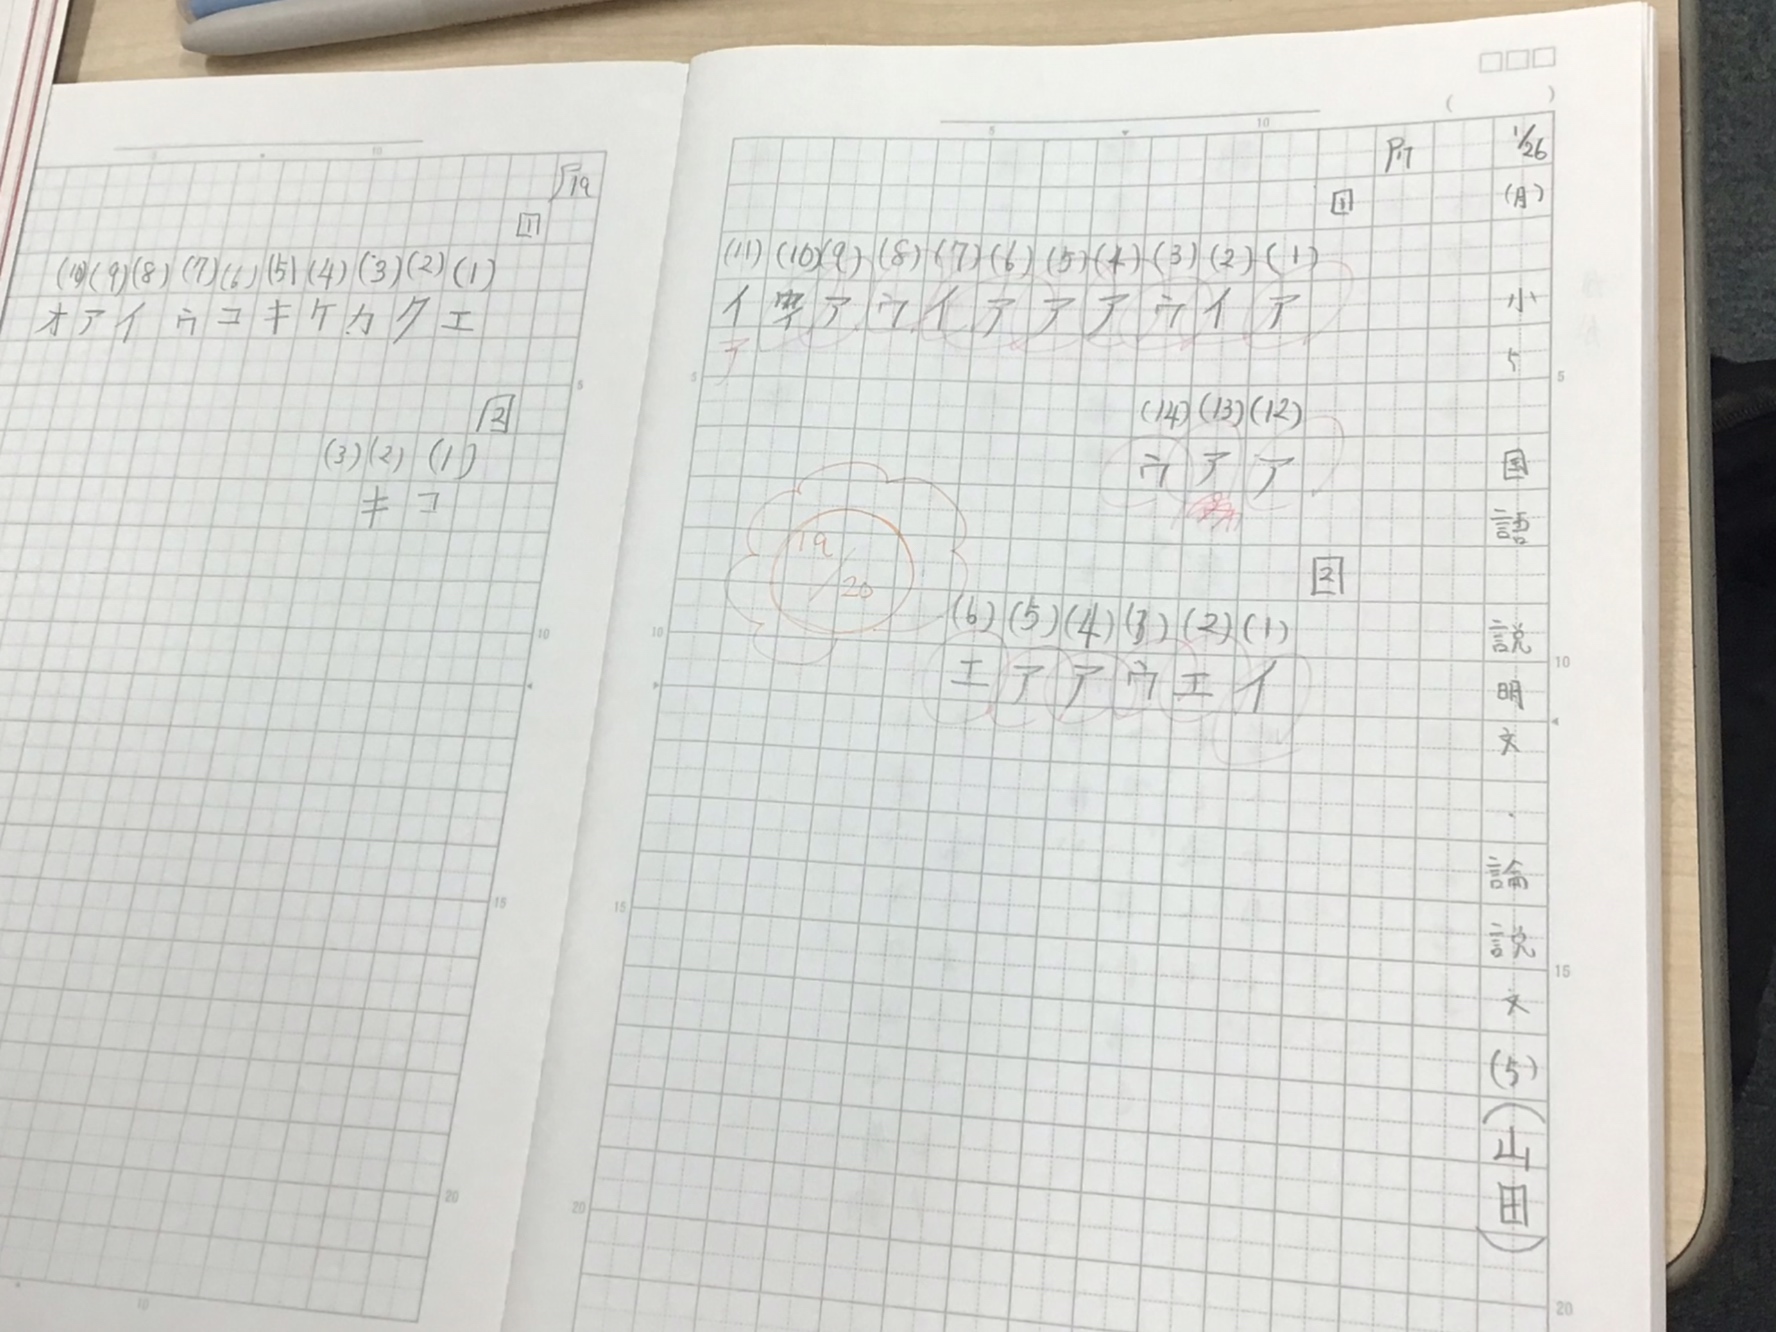 1/26 (月) 小5 国語 説明文・論説文(5)(山田)
P17
1
(1) (2) (3) (4) (5) (6) (7) (8) (9) (10) (11)
ア イ ウ ア ア ア イ ウ ア イ
ア
(12) (13) (14)
ア ア ウ
2
(1) (2) (3) (4) (5) (6)
イ エ ウ ア ア エ
19/20
P19
1
(1) (2) (3) (4) (5) (6) (7) (8) (9) (10)
エ ク カ ケ キ コ ウ イ ア オ
2
(1) (2) (3)
コ キ